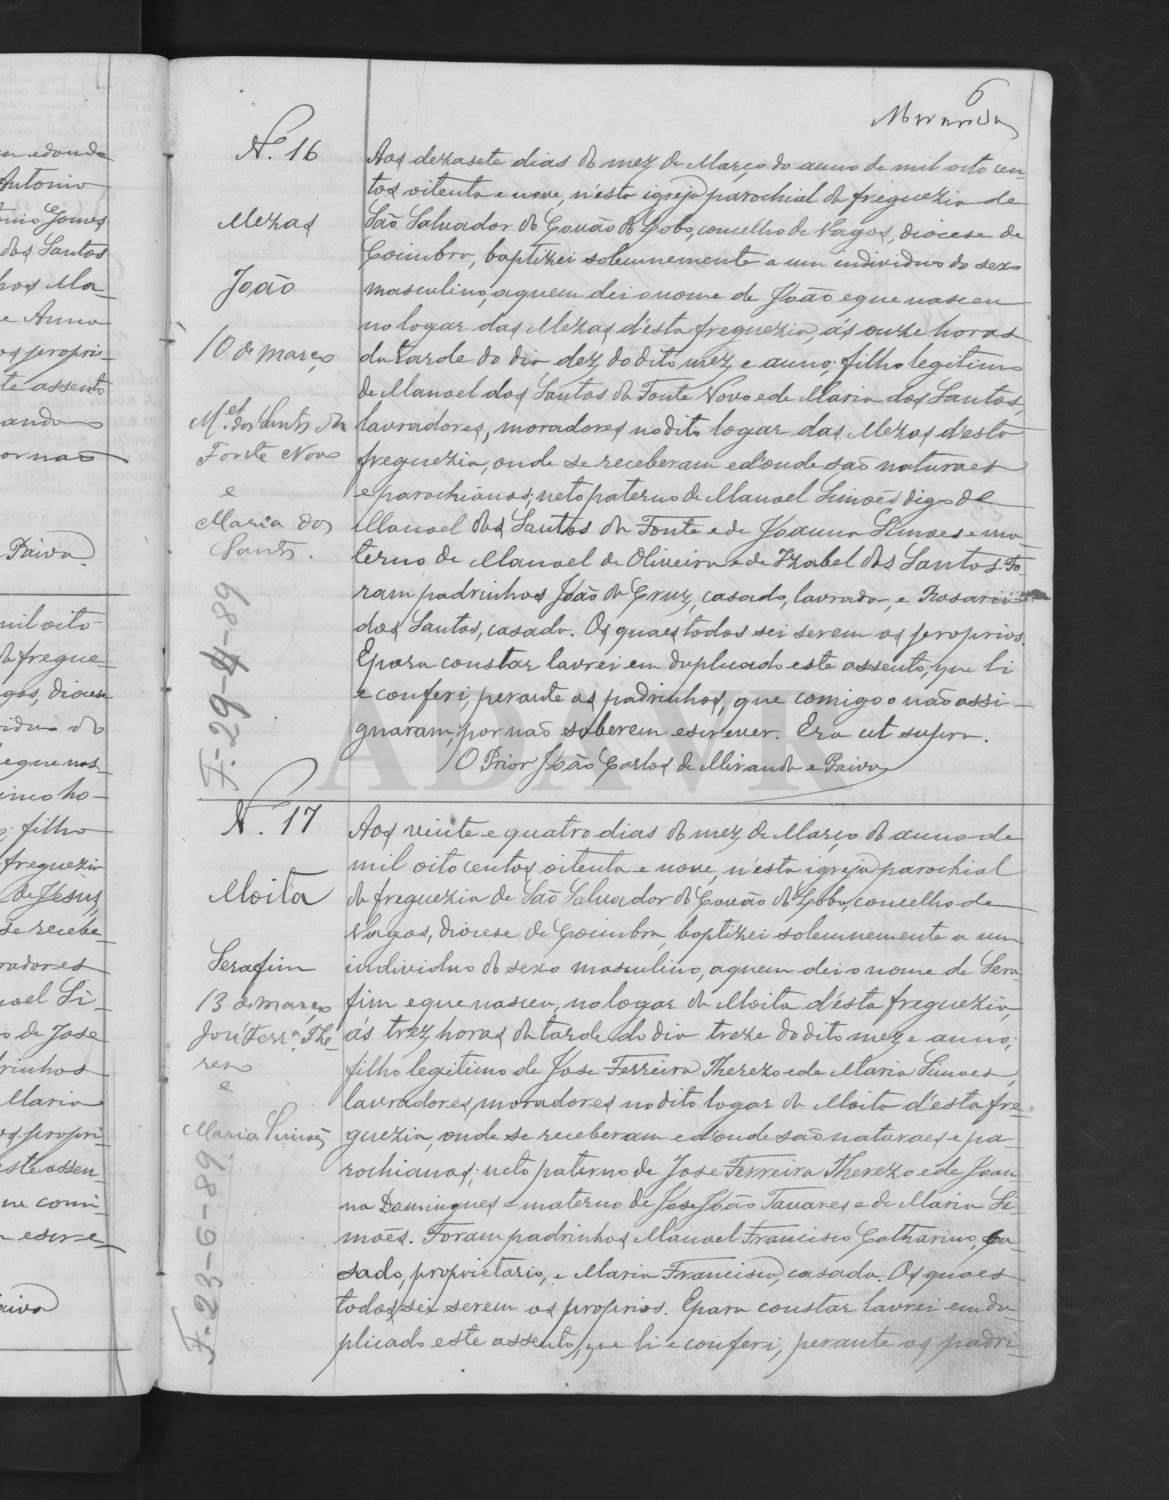 6
Miranda
N.º 16
Mezas
João
10 de março
M.el dos Santos da
Fonte Nova
e
Maria dos
Santos.
F. 29-4-89
Aos dezasete dias do mez de Março do anno de mil oito cen-
tos oitenta e nove, n'esta igreja parochial da freguezia de
São Salvador do Covão do Lobo, concelho de Vagos, diocese de
Coimbra, baptizei solemnemente a um individuo do sexo
masculino, a quem dei o nome de João e que nasceu
no logar das Mezas d'esta freguezia, ás onze horas
da tarde do dia dez do dito mez e anno; filho legitimo
de Manoel dos Santos da Fonte Nova e de Maria dos Santos,
lavradores, moradores no dito logar das Mezas d'esta
freguezia, onde se receberam e d'onde são naturaes
e parochianos; neto paterno de Manoel Simoẽs digo de
Manoel dos Santos da Fonte e de Joanna Simoes e ma-
terno de Manoel de Oliveira e de Izabel dos Santos. Fo-
ram padrinhos João da Cruz, casado, lavrador, e Rosaria
dos Santos, casada. Os quaes todos sei serem os proprios.
E para constar lavrei em duplicado este assento, que li
e conferi, perante os padrinhos, que comigo o não assi-
gnaram, por não saberem escrever. Era ut supra.
O Prior João Carlos de Miranda e Paiva
N.º 17
Moita
Serafim
13 de março
José Ferr.ª The-
rezo
e
Maria Simoẽs
F. 23-6-89
Aos vinte e quatro dias do mez de Março do anno de
mil oito centos oitenta e nove, n'esta igreja parochial
da freguezia de São Salvador do Covão do Lobo, concelho de
Vagos, diocese de Coimbra, baptizei solemnemente a um
individuo do sexo masculino, a quem dei o nome de Sera-
fim e que nasceu, no logar da Moita d'esta freguezia
ás trez horas da tarde do dia treze do dito mez e anno;
filho legitimo de José Ferreira Therezo e de Maria Simoes,
lavradores, moradores no dito logar da Moita d'esta fre-
guezia, onde se receberam e d'onde são naturaes e pa-
rochianos; neto paterno de Jose Ferreira Therezo e de Joan-
na Domingues e materno de José João Tavares e de Maria Si-
mões. Foram padrinhos Manoel Francisco Catharino, ca-
sado, proprietario, e Maria Francisca, casada. Os quaes
todos sei serem os proprios. E para constar lavrei em du-
plicado este assento, que li e conferi, perante os padri-
ADAVR